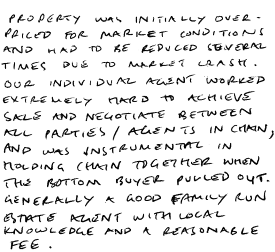 PROPERTY WAS INITIALLY OVER-
PRICED FOR MARKET CONDITIONS
AND HAD TO BE REDUCED SEVERAL
TIMES DUE TO MARKET CRASH.
OUR INDIVIDUAL AGENT WORKED
EXTREMELY HARD TO ACHIEVE
SALE AND NEGOTIATE BETWEEN
ALL PARTIES / AGENTS IN CHAIN,
AND WAS INSTRUMENTAL IN
HOLDING CHAIN TOGETHER WHEN
THE BOTTOM BUYER PULLED OUT.
GENERALLY A GOOD FAMILY RUN
ESTATE AGENT WITH LOCAL
KNOWLEDGE AND A REASONABLE
FEE.